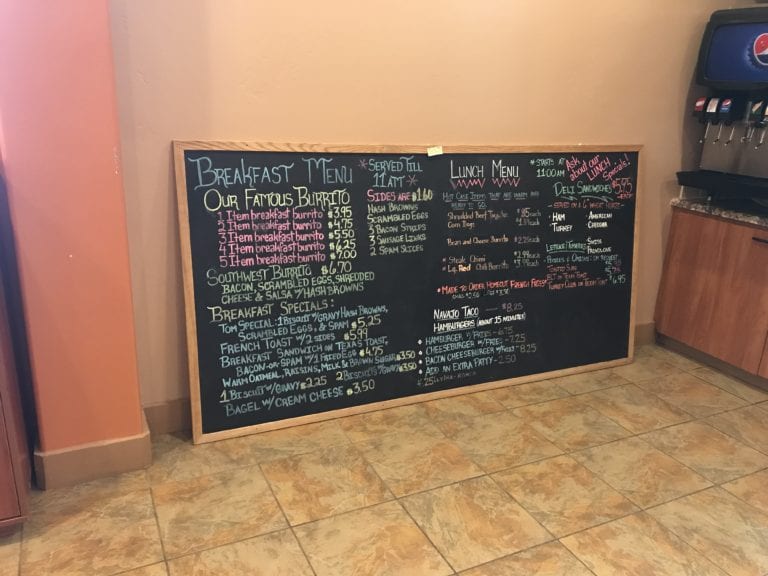 BREAKFAST MENU
*SERVED TILL
11 AM*
OUR FAMOUS BURRITO
1 Item breakfast burrito $3.95
2 Item breakfast burrito $4.75
3 Item breakfast burrito $5.50
4 Item breakfast burrito $6.25
5 Item breakfast burrito $7.00
SOUTHWEST BURRITO $6.70
BACON, SCRAMBLED EGGS, SHREDDED
CHEESE & SALSA W/HASH BROWNS
SIDES ARE $1.60
HASH BROWNS
SCRAMBLED EGGS
3 BACON STRIPS
3 SAUSAGE LINKS
2 SPAM SLICES
BREAKFAST SPECIALS:
TOM SPECIAL: 1 BISCUIT W/GRAVY, HASH BROWNS,
SCRAMBLED EGGS, & SPAM $5.25
FRENCH TOAST W/2 SIDES $5.99
BREAKFAST SANDWICH ON TEXAS TOAST,
BACON-OR-SPAM W/1 FRIED EGG $4.75
WARM OATMEAL, RAISINS, MILK & BROWN SUGAR $3.50
1 BISCUIT W/GRAVY $2.25 2 BISCUITS W/GRAVY $3.50
BAGEL W/CREAM CHEESE $3.50
LUNCH MENU
*STARTS AT
11:00AM
Ask about our LUNCH Specials!
HOT CASE ITEMS THAT ARE WARM AND
READY TO GO.
Shredded Beef
Corn Dogs
Bean and Cheese Burrito $2.25each
Steak Chimi
Red Chili Burrito
*MADE TO ORDER HOMECUT FRENCH FRIES*
NAVAJO TACO $8.25
HAMBURGERS (ABOUT 15 MINUTES)
HAMBURGER W/FRIES - 6.75
CHEESEBURGER W/FRIES - 7.25
BACON CHEESEBURGER W/FRIES 8.25
ADD AN EXTRA PATTY - 2.50
DELI SANDWICHES $5.95
HAM
TURKEY
AMERICAN
CHEDDAR
SWISS
PROVOLONE